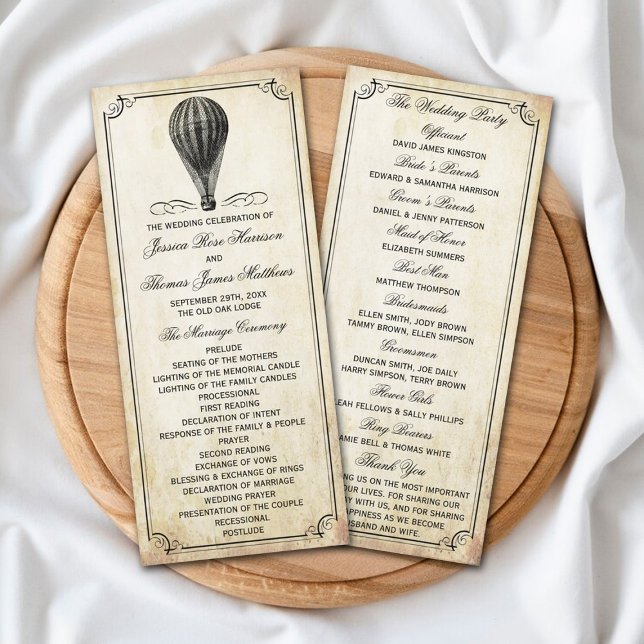 THE WEDDING CELEBRATION OF
Jessica Rose Harrison
AND
Thomas James Matthews
SEPTEMBER 29TH, 20XX
THE OLD OAK LODGE
The Marriage Ceremony
PRELUDE
SEATING OF THE MOTHERS
LIGHTING OF THE MEMORIAL CANDLE
LIGHTING OF THE FAMILY CANDLES
PROCESSIONAL
FIRST READING
DECLARATION OF INTENT
RESPONSE OF THE FAMILY & PEOPLE
PRAYER
SECOND READING
EXCHANGE OF VOWS
BLESSING & EXCHANGE OF RINGS
DECLARATION OF MARRIAGE
WEDDING PRAYER
PRESENTATION OF THE COUPLE
RECESSIONAL
POSTLUDE
The Wedding Party
Officiant
DAVID JAMES KINGSTON
Bride's Parents
EDWARD & SAMANTHA HARRISON
Groom's Parents
DANIEL & JENNY PATTERSON
Maid of Honor
ELIZABETH SUMMERS
Best Man
MATTHEW THOMPSON
Bridesmaids
ELLEN SMITH, JODY BROWN
TAMMY BROWN, ELLEN SIMPSON
Groomsmen
DUNCAN SMITH, JOE DAILY
HARRY SIMPSON, TERRY BROWN
Flower Girls
LEAH FELLOWS & SALLY PHILLIPS
Ring Bearers
AMIE BELL & THOMAS WHITE
Thank You
ING US ON THE MOST IMPORTANT
OUR LIVES. FOR SHARING OUR
WITH US, AND FOR SHARING
HAPPINESS AS WE BECOME
HUSBAND AND WIFE.